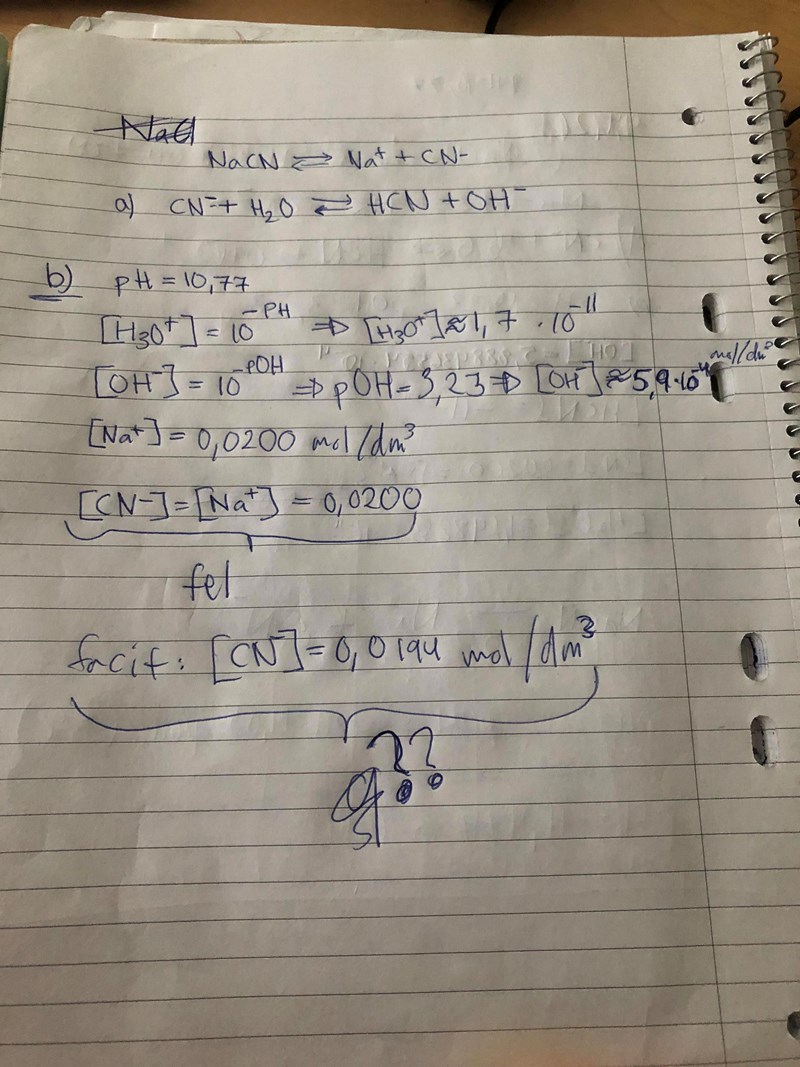 NaCl
NaCN ⇌ Na⁺ + CN-
a) CN⁻ + H₂O ⇌ HCN + OH⁻
b) pH = 10,77
[H₃O⁺] = 10^-PH ⇒ [H₃O⁺] ≈ 1,7 · 10^-11
[OH⁻] = 10^-pOH ⇒ pOH = 3,23 ⇒ [OH⁻] ≈ 5,9·10^-4 mol/dm³
[Na⁺] = 0,0200 mol/dm³
[CN⁻] = [Na⁺] = 0,0200
fel
facit: [CN⁻] = 0,0194 mol/dm³
??